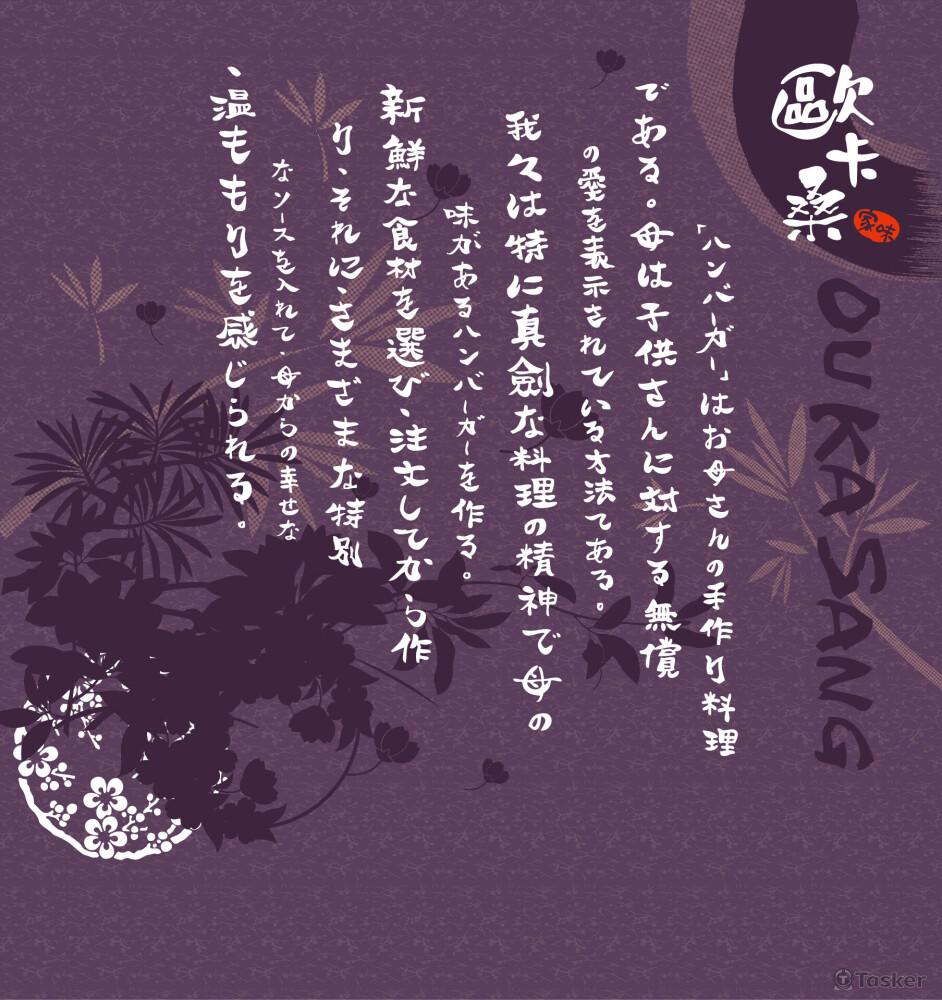 歐卡桑
家味
OUKASANG
「ハンバーガー」はお母さんの手作り料理
である。母は子供さんに対する無償
の愛を表示されている方法てある。
我々は特に真劍な料理の精神で母の
味があるハンバーガーを作る。
新鮮な食材を選び、注文してから作
り、それに、さまざまな特別
なソースを入れて、母からの幸せな
、温ももりを感じられる。
Tasker